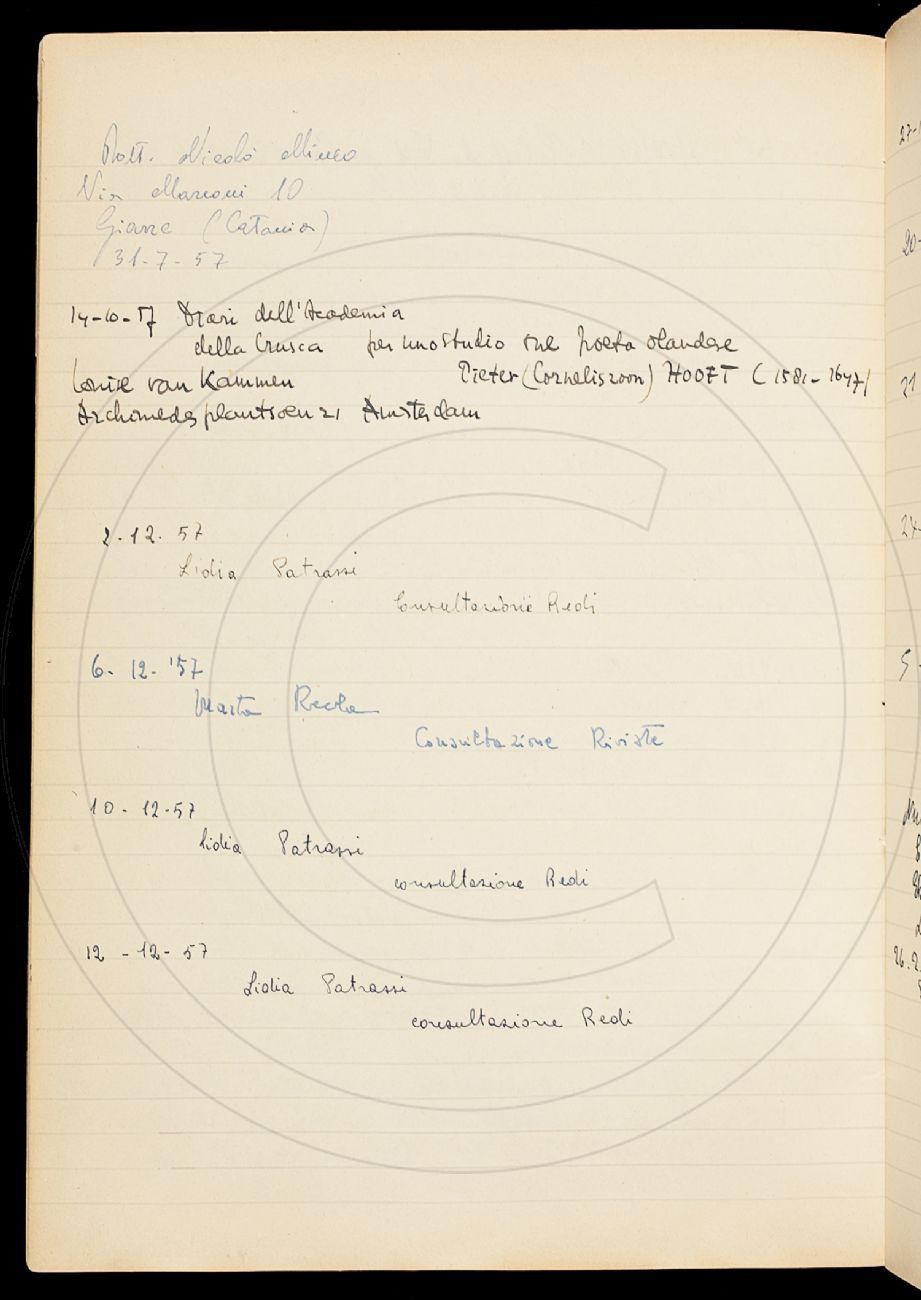 Dott. Nicolò Mineo
Via Marconi 10
Giarre (Catania)
31-7-57
14-10-57 Diari dell'Academia
della Crusca per uno studio sul poeta olandese
Louise van Kammen Pieter (Corneliszoon) HOOFT (1581-1647)
Archimedesplantsoen 21 Amsterdam
2-12-57
Lidia Patrassi
Consultazione Redi
6-12-'57
Marta
Consultazione Riviste
10-12-57
Lidia Patrassi
consultazione Redi
12-12-57
Lidia Patrassi
consultazione Redi